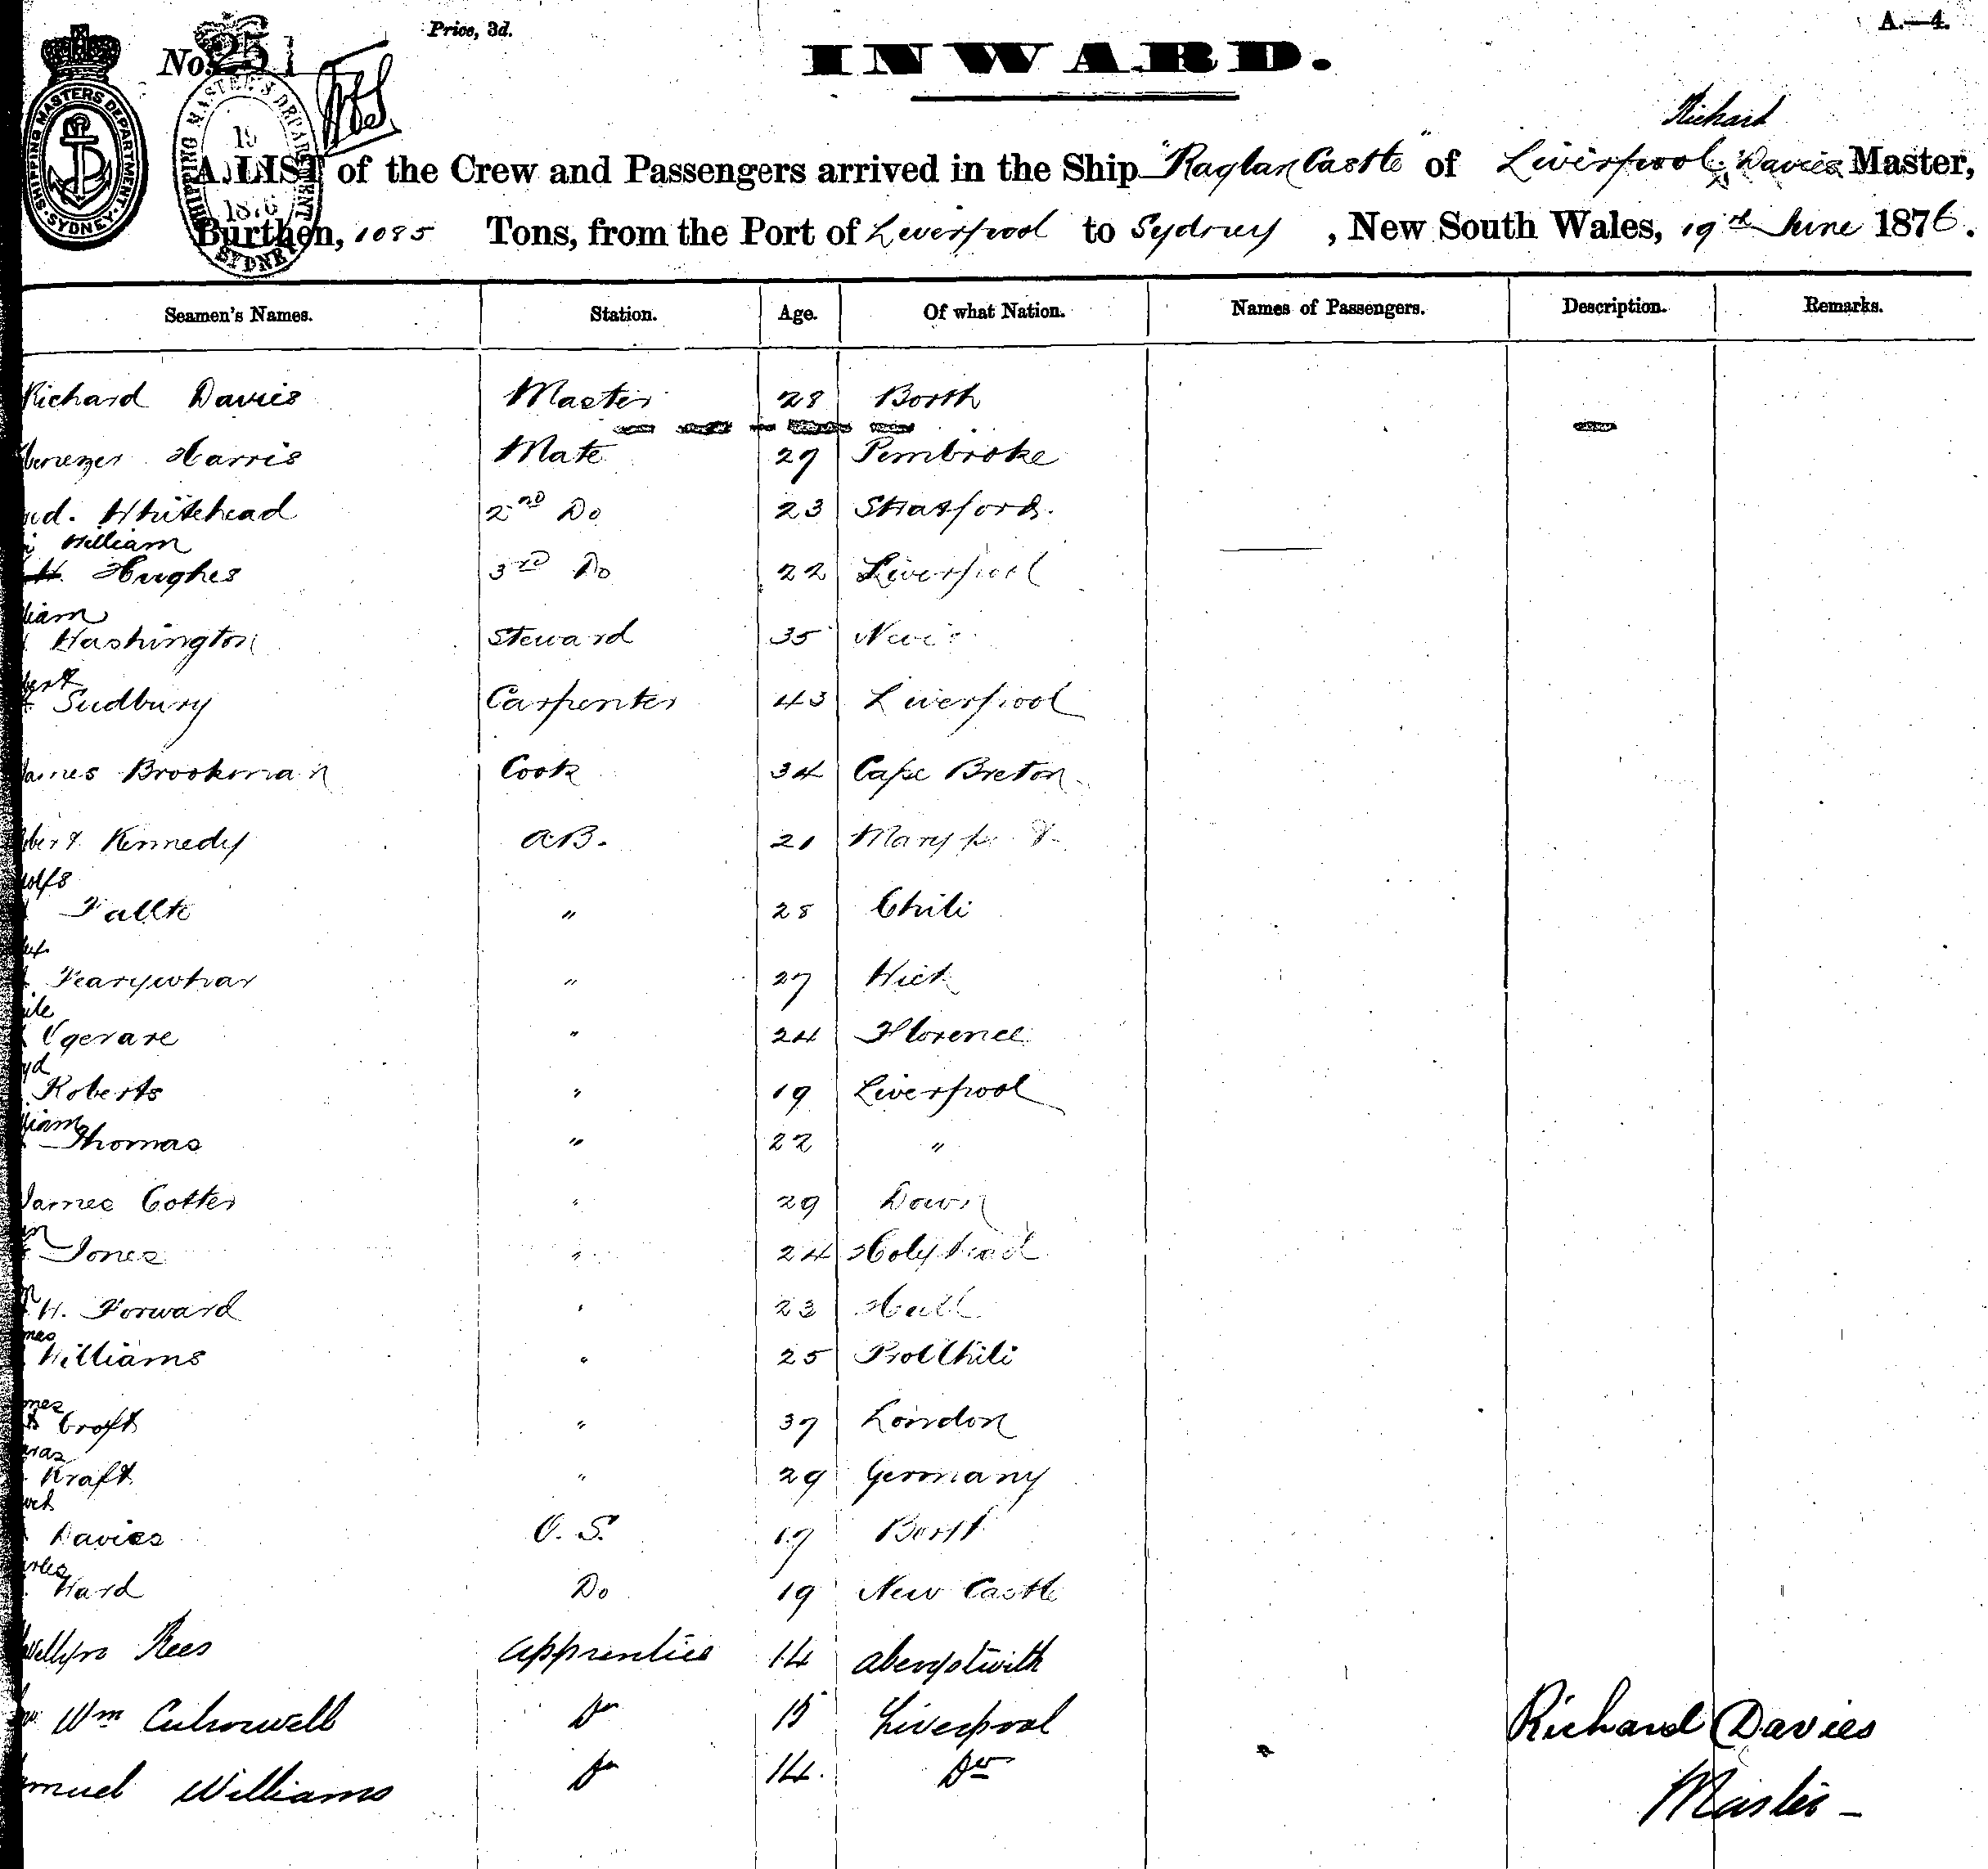 Price, 3d.
A.—4.
No. 251
INWARD.
SHIPPING MASTERS DEPARTMENT. SYDNEY.
SHIPPING MASTER'S DEPARTMENT SYDNEY
19
1876
Richard
A LIST of the Crew and Passengers arrived in the Ship "Raglan Castle" of Liverpool, Davies Master,
Burthen, 1085 Tons, from the Port of Liverpool to Sydney, New South Wales, 19th June 1876.
Seamen's Names. Station. Age. Of what Nation. Names of Passengers. Description. Remarks.
Richard Davies Master 28 Borth
Harris Mate 27 Pembroke
Whitehead 2nd Do 23 Stratford.
William
Hughes 3rd Do 22 Liverpool
Washington Steward 35 Nevis
Sudbury Carpenter 43 Liverpool
James Brookman Cook 34 Cape Breton
Kennedy A.B. 21
" 28 Chili
" 27 Wick
" 24 Florence
Roberts " 19 Liverpool
Thomas " 22 "
James Cotter " 29 Down
Jones " 24 Holyhead
H. Forward " 23 Hull
Williams " 25 Chili
Croft " 37 London
Kraft " 29 Germany
Davies O.S. 17 Borth
Ward Do 19 New Castle
Rees Apprentice 14 Aberystwith
Wm Do 15 Liverpool
Williams Do 14. Do
Richard Davies
Master